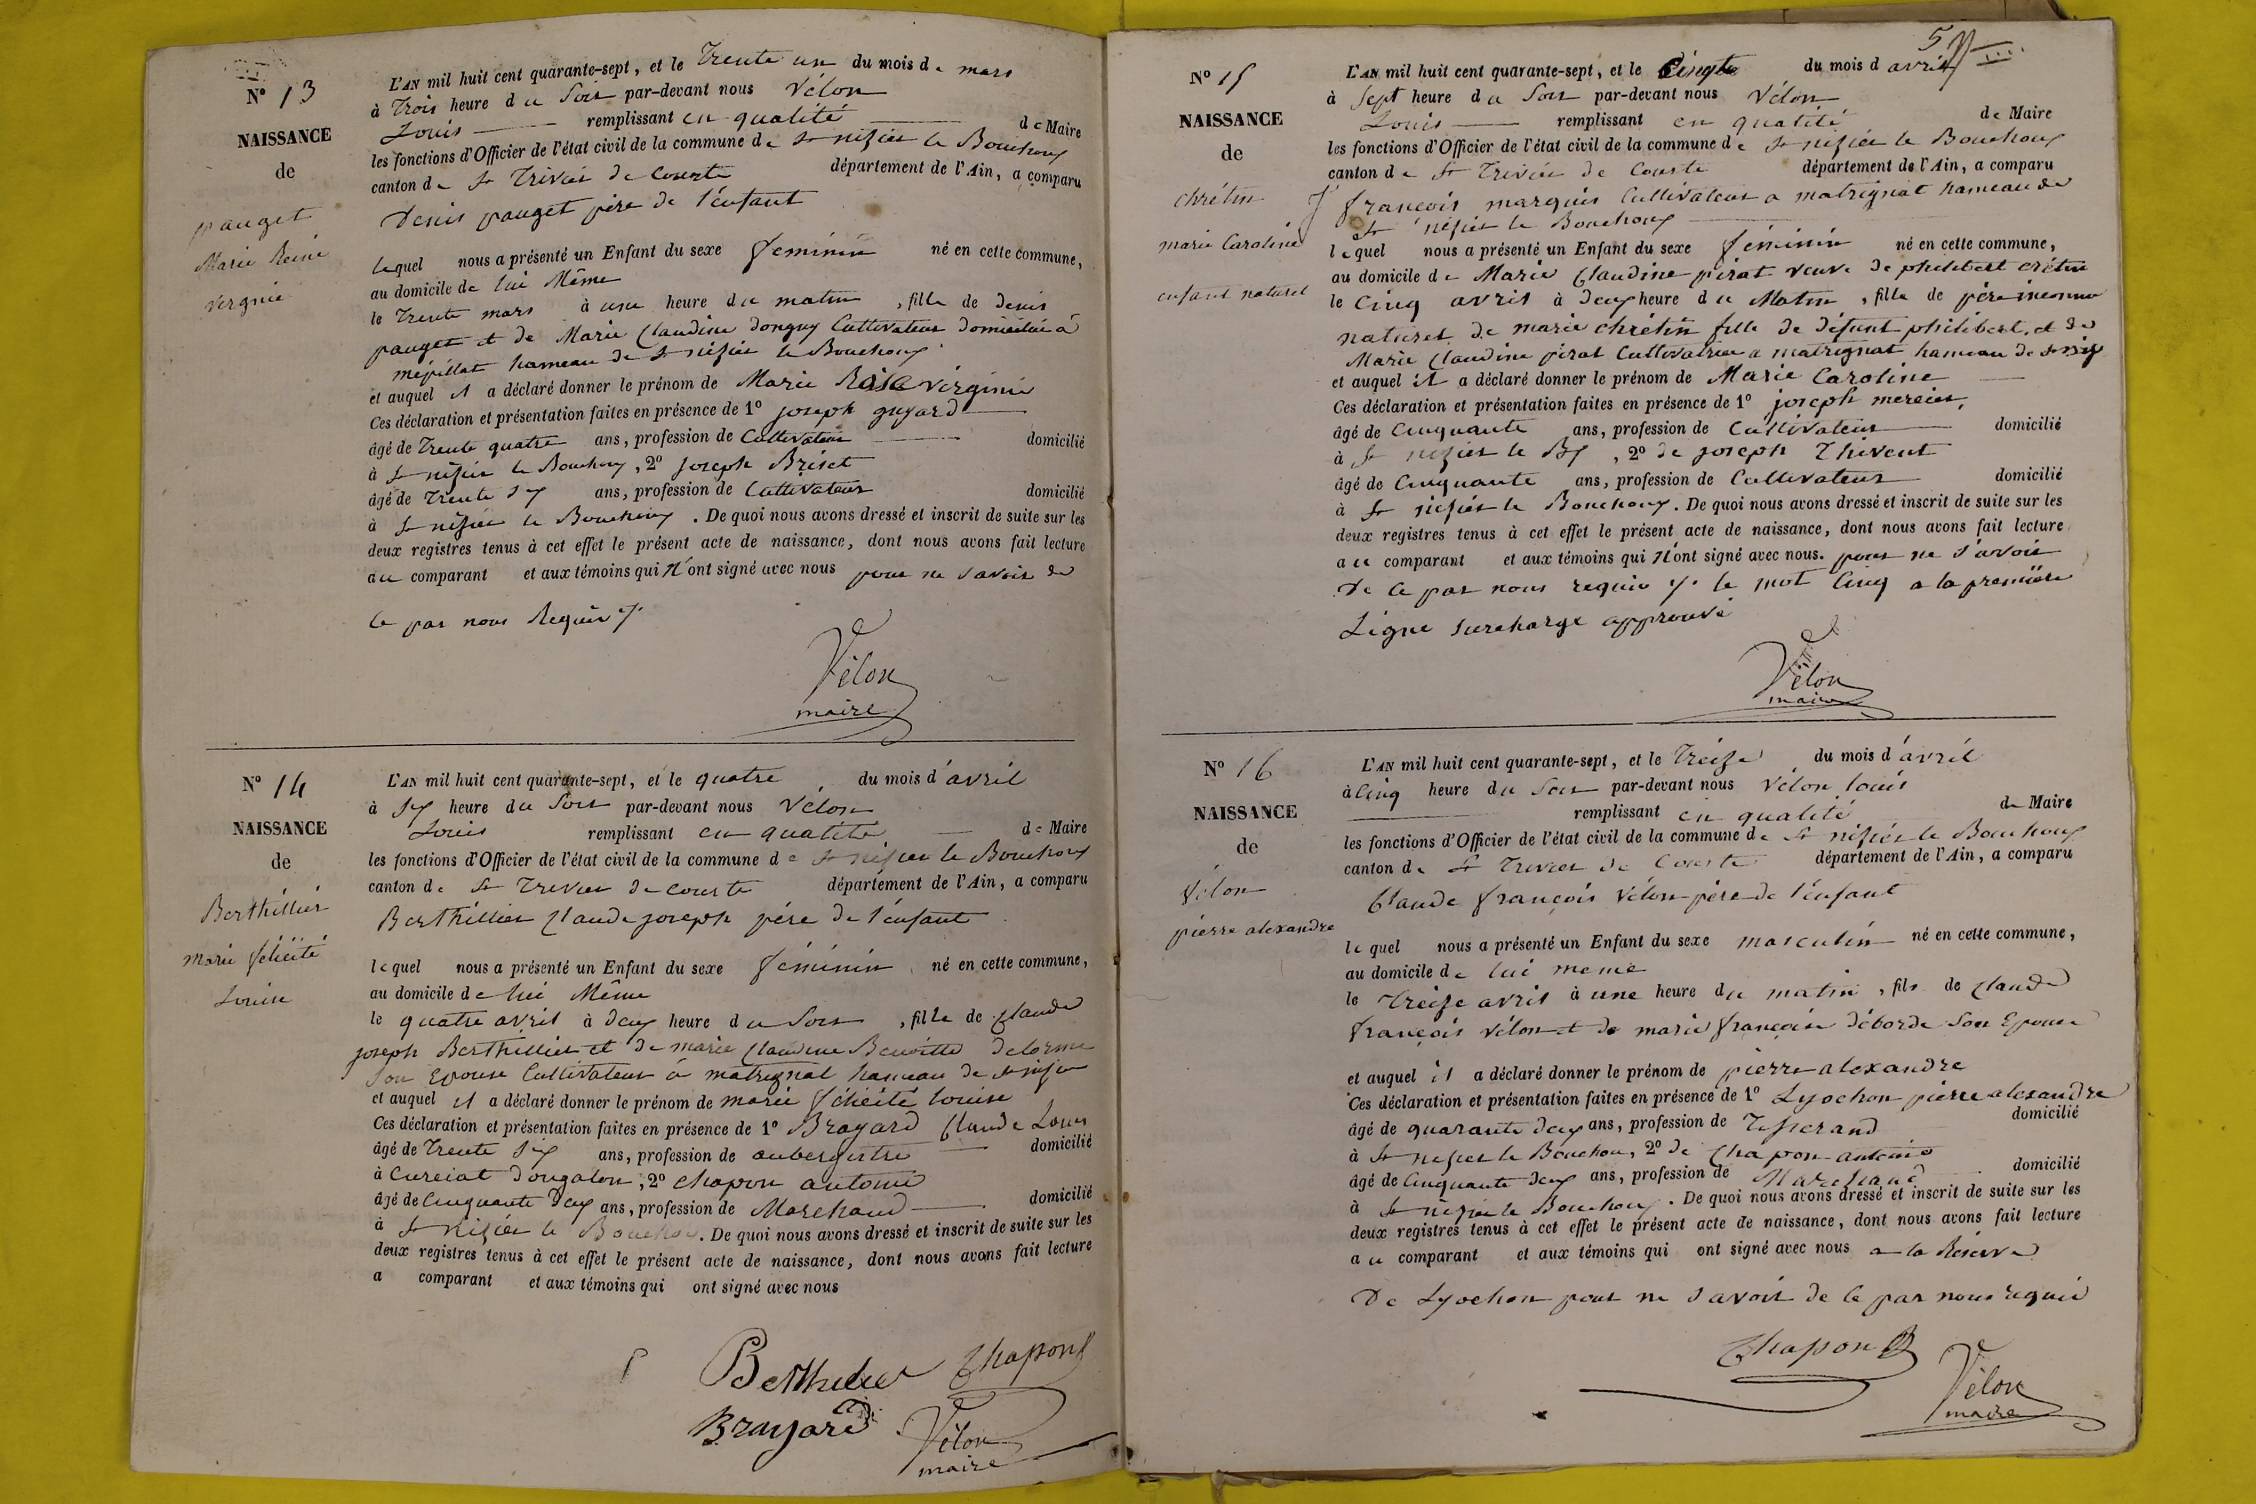 N° 13
NAISSANCE
de
pauget
Marie Reine
vergnie
L'AN mil huit cent quarante-sept, et le Trente un du mois de mars
à Trois heure du Soir par-devant nous Vélon
Louis remplissant en qualité de Maire
les fonctions d'Officier de l'état civil de la commune de St nizier le Bouchoux
canton de St Trivier de Courte département de l'Ain, a comparu
Denis pauget père de l'enfant
lequel nous a présenté un Enfant du sexe féminin né en cette commune,
au domicile de lui Même
le Trente mars à une heure du matin, fille de Denis
pauget et de Marie Claudine donguy Cultivateur domicilié à
mépillat hameau de St nizier le Bouchoux
et auquel il a déclaré donner le prénom de Marie virginie
Ces déclaration et présentation faites en présence de 1° joseph guyard
âgé de Trente quatre ans, profession de Cultivateur domicilié
à St nizier le Bouchoux, 2° joseph Briset
âgé de Trente six ans, profession de Cultivateur domicilié
à St nizier le Bouchoux. De quoi nous avons dressé et inscrit de suite sur les
deux registres tenus à cet effet le présent acte de naissance, dont nous avons fait lecture
au comparant et aux témoins qui N'ont signé avec nous pour ne savoir de
ce par nous Requis
Vélon
maire
N° 14
NAISSANCE
de
Berthillier
marie félicité
Louise
L'AN mil huit cent quarante-sept, et le quatre du mois d'avril
à six heure du Soir par-devant nous Vélon
Louis remplissant en qualité de Maire
les fonctions d'Officier de l'état civil de la commune de St nizier le Bouchoux
canton de St Trivier de courte département de l'Ain, a comparu
Berthillier Claude joseph père de l'enfant
lequel nous a présenté un Enfant du sexe féminin né en cette commune,
au domicile de lui Même
le quatre avril à deux heure du Soir, fille de Claude
joseph Berthillier et de marie Claudine Benoitte delorme
Son Epouse Cultivateur à matrignat hameau de St nizier
et auquel il a déclaré donner le prénom de marie félicité louise
Ces déclaration et présentation faites en présence de 1° Brayard Claude Louis
âgé de Trente six ans, profession de aubergistre domicilié
à Curciat Dongalon, 2° Chapon antoine
âgé de Cinquante deux ans, profession de Marchand domicilié
à St Nizier le Bouchoux. De quoi nous avons dressé et inscrit de suite sur les
deux registres tenus à cet effet le présent acte de naissance, dont nous avons fait lecture
a comparant et aux témoins qui ont signé avec nous
Berthilier Chapon
Brayard Vélon
maire
5
N° 15
NAISSANCE
de
chrétin
marie Caroline
enfant naturel
L'AN mil huit cent quarante-sept, et le Cinq du mois d avril
à sept heure du Soir par-devant nous Vélon
Louis remplissant en qualité de Maire
les fonctions d'Officier de l'état civil de la commune de St nizier le Bouchoux
canton de St Trivier de Courte département de l'Ain, a comparu
françois marquis Cultivateur a matrignat hameau de
St nizier le Bouchoux
lequel nous a présenté un Enfant du sexe féminin né en cette commune,
au domicile de Marie Claudine pirat veuve de philibert crétin
le Cinq avril à deux heure du Matin, fille de père inconnu
naturel de marie chrétin fille de défunt philibert et de
Marie Claudine pirat Cultivatrice a matrignat hameau de St niz
et auquel il a déclaré donner le prénom de Marie Caroline
Ces déclaration et présentation faites en présence de 1° joseph mercier,
âgé de Cinquante ans, profession de Cultivateur domicilié
à St nizier le Bx, 2° de joseph Thivent
âgé de Cinquante ans, profession de Cultivateur domicilié
à St nizier le Bouchoux. De quoi nous avons dressé et inscrit de suite sur les
deux registres tenus à cet effet le présent acte de naissance, dont nous avons fait lecture
au comparant et aux témoins qui N'ont signé avec nous. pour ne savoir
De ce par nous requis le mot Cinq a la première
Ligne surcharge approuvé
Vélon
maire
N° 16
NAISSANCE
de
Vélon
pierre alexandre
L'AN mil huit cent quarante-sept, et le Treize du mois d'avril
à Cinq heure du Soir par-devant nous Vélon Louis
remplissant en qualité de Maire
les fonctions d'Officier de l'état civil de la commune de St nizier le Bouchoux
canton de St Trivier de Courte département de l'Ain, a comparu
Claude françois Vélon père de l'enfant
lequel nous a présenté un Enfant du sexe masculin né en cette commune,
au domicile de lui meme
le Treize avril à une heure du matin, fils de Claude
françois Vélon et de marie françoise déborde Son Epouse
et auquel il a déclaré donner le prénom de pierre alexandre
Ces déclaration et présentation faites en présence de 1° Lyochon pierre alexandre
âgé de quarante deux ans, profession de Tisserand domicilié
à St nizier le Bouchou, 2° de Chapon antoine
âgé de Cinquante deux ans, profession de Marchand domicilié
à St nizier le Bouchoux. De quoi nous avons dressé et inscrit de suite sur les
deux registres tenus à cet effet le présent acte de naissance, dont nous avons fait lecture
au comparant et aux témoins qui ont signé avec nous a la Réserve
De Lyochon pour ne savoir de ce par nous requis
Chapon
Vélon
maire